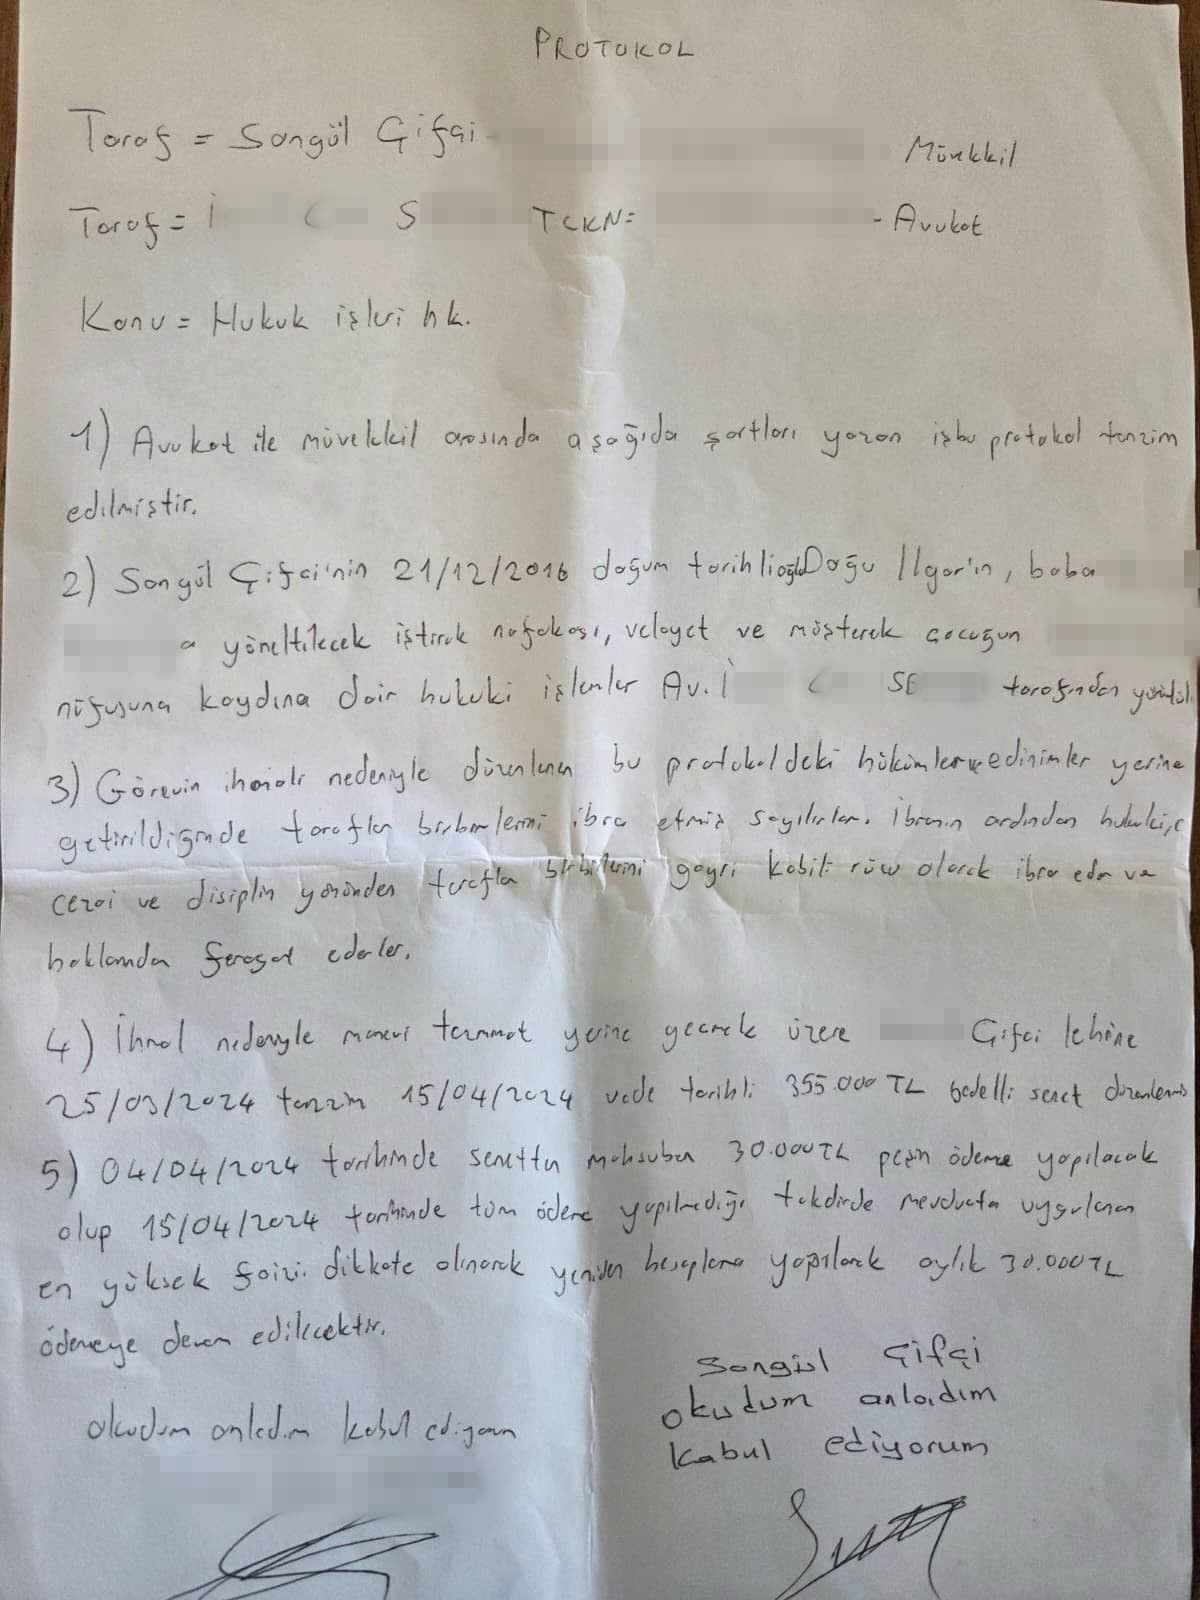 PROTOKOL
Taraf = Songül Çifçi - Müvekkil
Taraf = İ C S TCKN= - Avukat
Konu = Hukuk işleri hk.
1) Avukat ile müvekkil arasında aşağıda şartları yazan işbu protokol tanzim
edilmiştir.
2) Songül Çifçi'nin 21/12/2016 doğum tarihli oğlu Doğu Ilgar'ın, baba
a yöneltilecek iştirak nafakası, velayet ve müşterek çocuğun
nüfusuna kaydına dair hukuki işlemler Av. İ C SE tarafından
3) Görevin ihmali nedeniyle düzenlenen bu protokoldeki hükümler ve edinimler yerine
getirildiğinde taraflar birbirlerini ibra etmiş sayılırlar. İbranın ardından hukuki,
cezai ve disiplin yönünden taraflar birbirlerini gayri kabili rücu olarak ibra eder ve
haklarından feragat ederler.
4) İhmal nedeniyle manevi tazminat yerine geçmek üzere Çifçi lehine
25/03/2024 tanzim 15/04/2024 vade tarihli 355.000 TL bedelli senet düzenlenmiş
5) 04/04/2024 tarihinde senetten mahsuben 30.000TL peşin ödeme yapılacak
olup 15/04/2024 tarihinde tüm ödeme yapılmadığı takdirde mevduata uygulanan
en yüksek faizi dikkate alınarak yeniden hesaplama yapılarak aylık 30.000TL
ödemeye devam edilecektir.
Songül Çifçi
okudum anladım
kabul ediyorum
okudum anladım kabul ediyorum